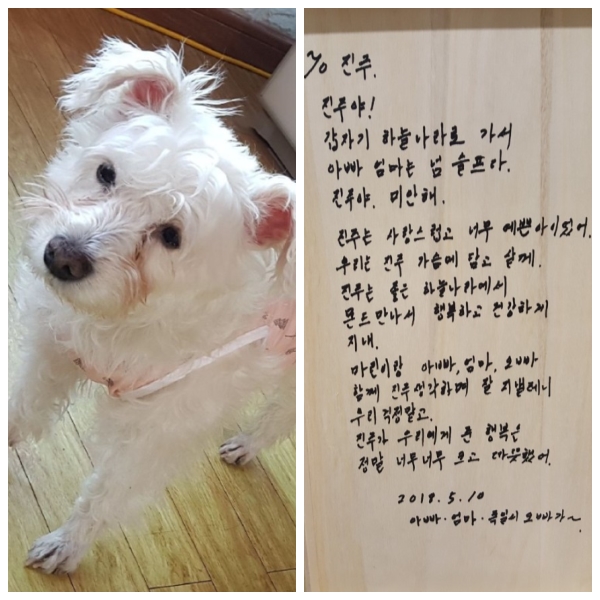 To 진주.
진주야!
갑자기 하늘나라로 가서
아빠 엄마는 넘 슬프다.
진주야. 미안해.
진주는 사랑스럽고 너무 예쁜아이였어.
우리는 진주 가슴에 담고 살께.
진주는 좋은 하늘나라에서
몬드만나서 행복하고 건강하게
지내.
마린이랑 아빠, 엄마, 오빠
함께 진주생각하며 잘 지낼테니
우리걱정말고.
진주가 우리에게 준 행복은
정말 너무너무 크고 따뜻했어.
2019.5.10
아빠·엄마· 오빠가~